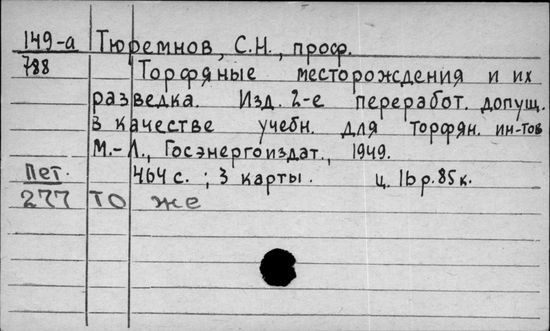 149-а Тюремнов, С.Н., проф.
788 Торфяные месторождения и их
разведка. Изд. 2-е переработ. допущ.
в качестве учебн. для торфян. ин-тов
М.-Л., Госэнергоиздат., 1949.
Пет. 464 с. ; 3 карты. ц. 16 р. 85 к.
277 то же